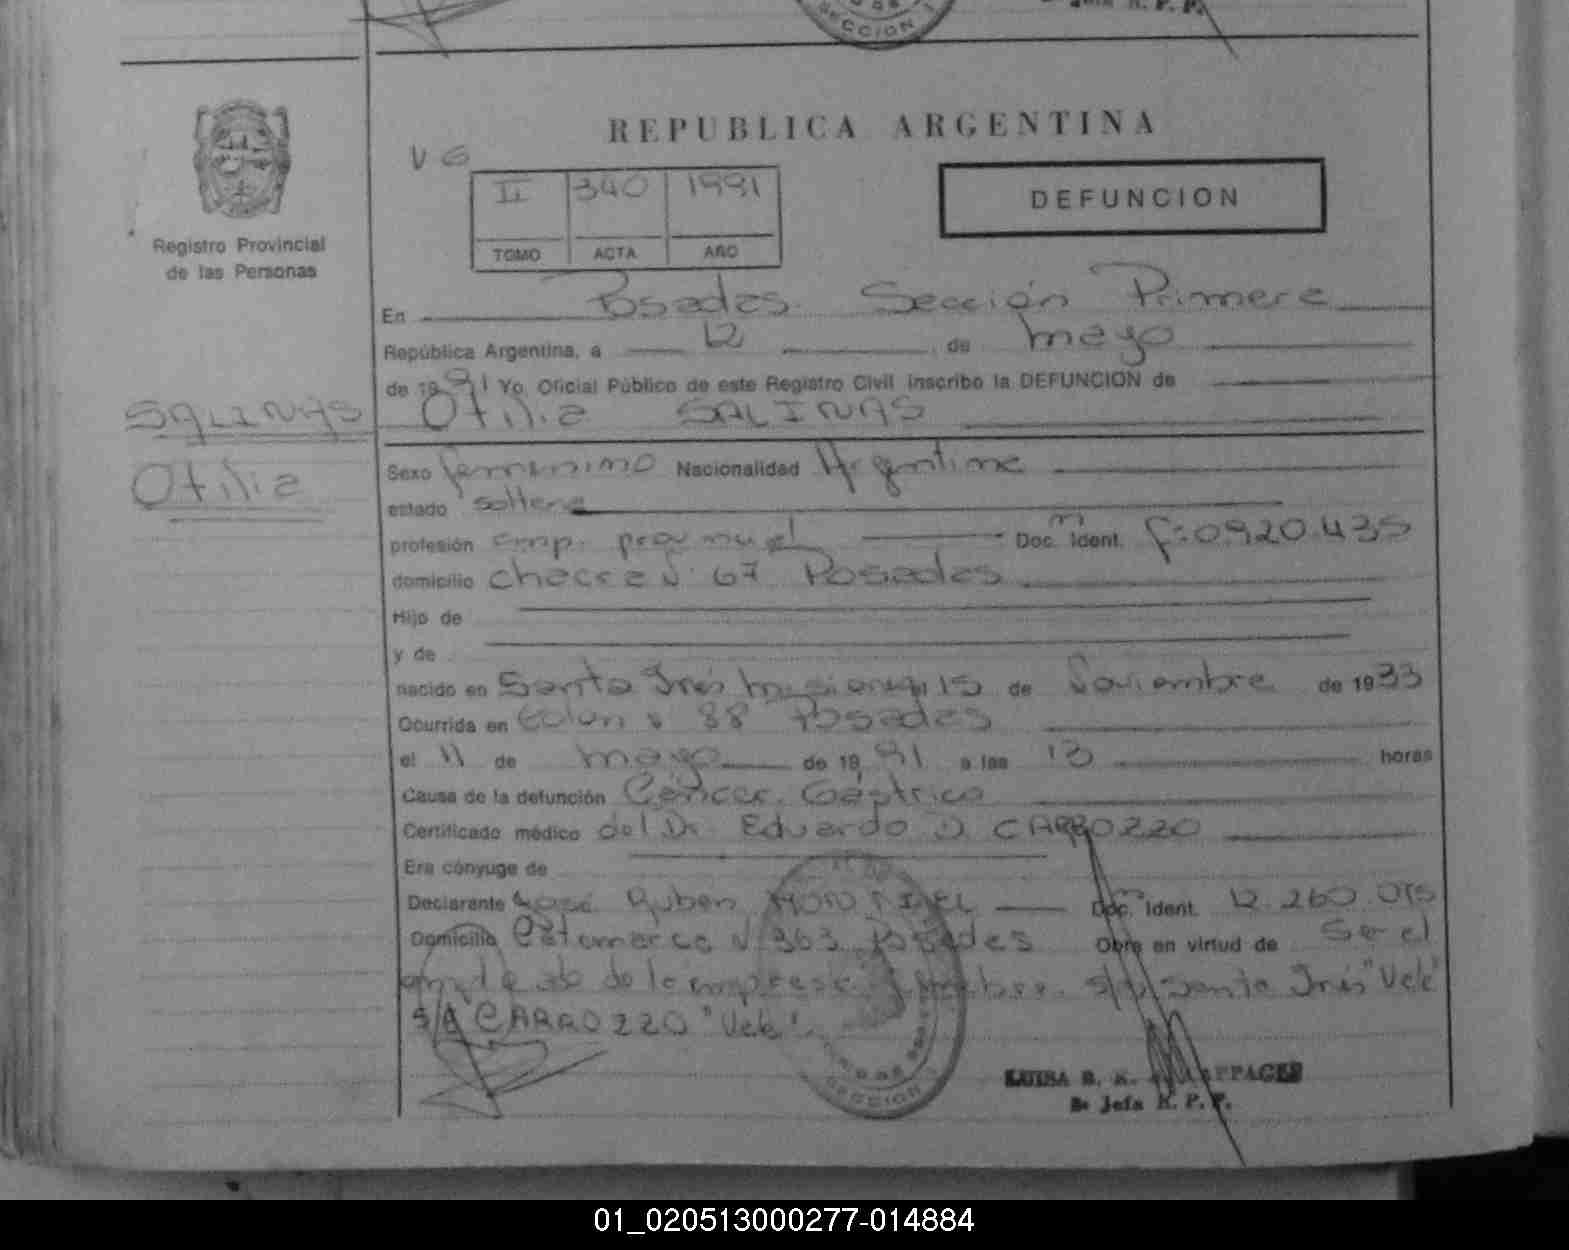 SECCION 1
R. P. P.
REPUBLICA ARGENTINA
V G
II 340 1991
TOMO ACTA AÑO
DEFUNCION
Registro Provincial
de las Personas
En Posadas. Sección Primera
República Argentina, a 12 de mayo
de 1991 Yo, Oficial Público de este Registro Civil inscribo la DEFUNCION de
SALINAS
Otilia SALINAS
Otilia
Sexo femenino Nacionalidad Argentina
estado soltera
profesión emp. Doc. Ident. f: 0.920.435
domicilio chacra N° 67 Posadas
Hijo de
y de
nacido en Santa Inés Misiones el 15 de Noviembre de 1933
Ocurrida en Colon N 88 Posadas
el 11 de mayo de 1991 a las 13 horas
Causa de la defunción Cáncer Gástrico
Certificado médico del Dr. Eduardo D. CARROZZO
Era cónyuge de
Declarante José Ruben Doc. Ident. 12.260.015
Domicilio Catamarca N 363 Posadas Obra en virtud de Ser el
empleado de la empresa s/r Santa Inés "Vale"
S/R CARROZZO "Vale".
SECCION 1
LUISA B. K.
Jefa R. P. P.
01_020513000277-014884